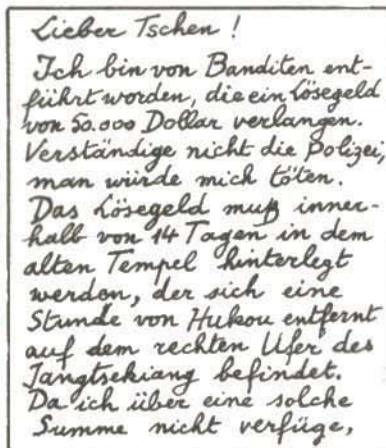 Lieber Tschen !
Ich bin von Banditen ent-
führt worden, die ein Lösegeld
von 50.000 Dollar verlangen.
Verständige nicht die Polizei,
man würde mich töten.
Das Lösegeld muß inner-
halb von 14 Tagen in dem
alten Tempel hinterlegt
werden, der sich eine
Stunde von Hukou entfernt
auf dem rechten Ufer des
Jangtsekiang befindet.
Da ich über eine solche
Summe nicht verfüge,